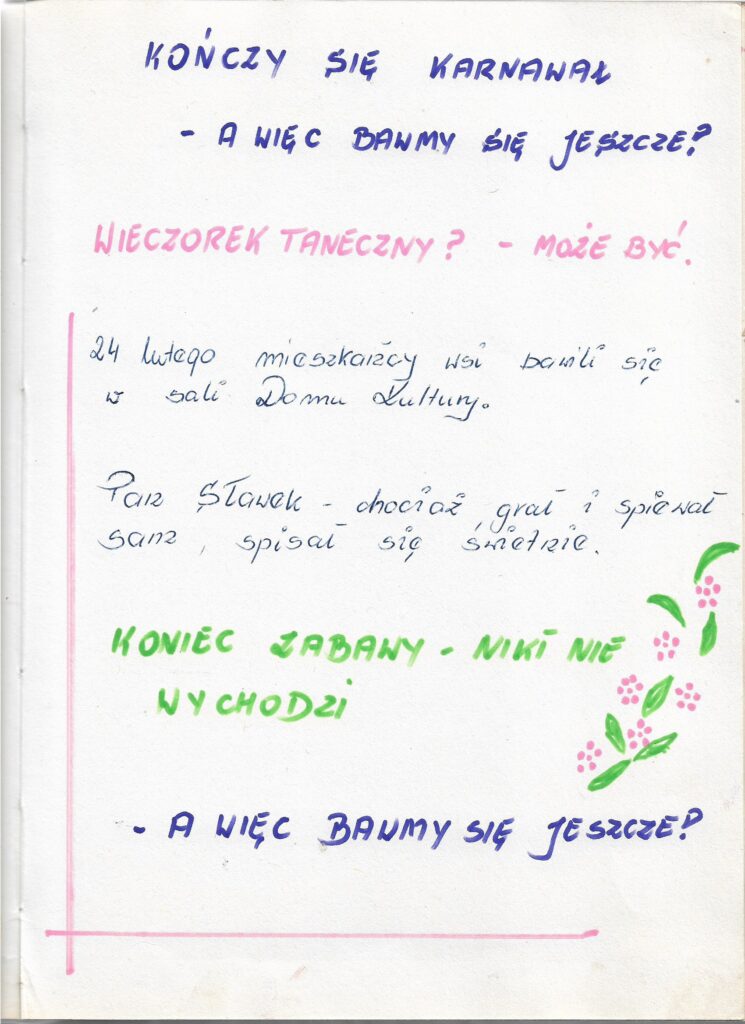 KOŃCZY SIĘ KARNAWAŁ
- A WIĘC BAWMY SIĘ JESZCZE?
WIECZOREK TANECZNY? - MOŻE BYĆ.
24 lutego mieszkańcy wsi bawili się
w sali Domu Kultury.
Pan Sławek - chociaż grał i śpiewał
sam, spisał się świetnie.
KONIEC ZABAWY - NIKT NIE
WYCHODZI
- A WIĘC BAWMY SIĘ JESZCZE?